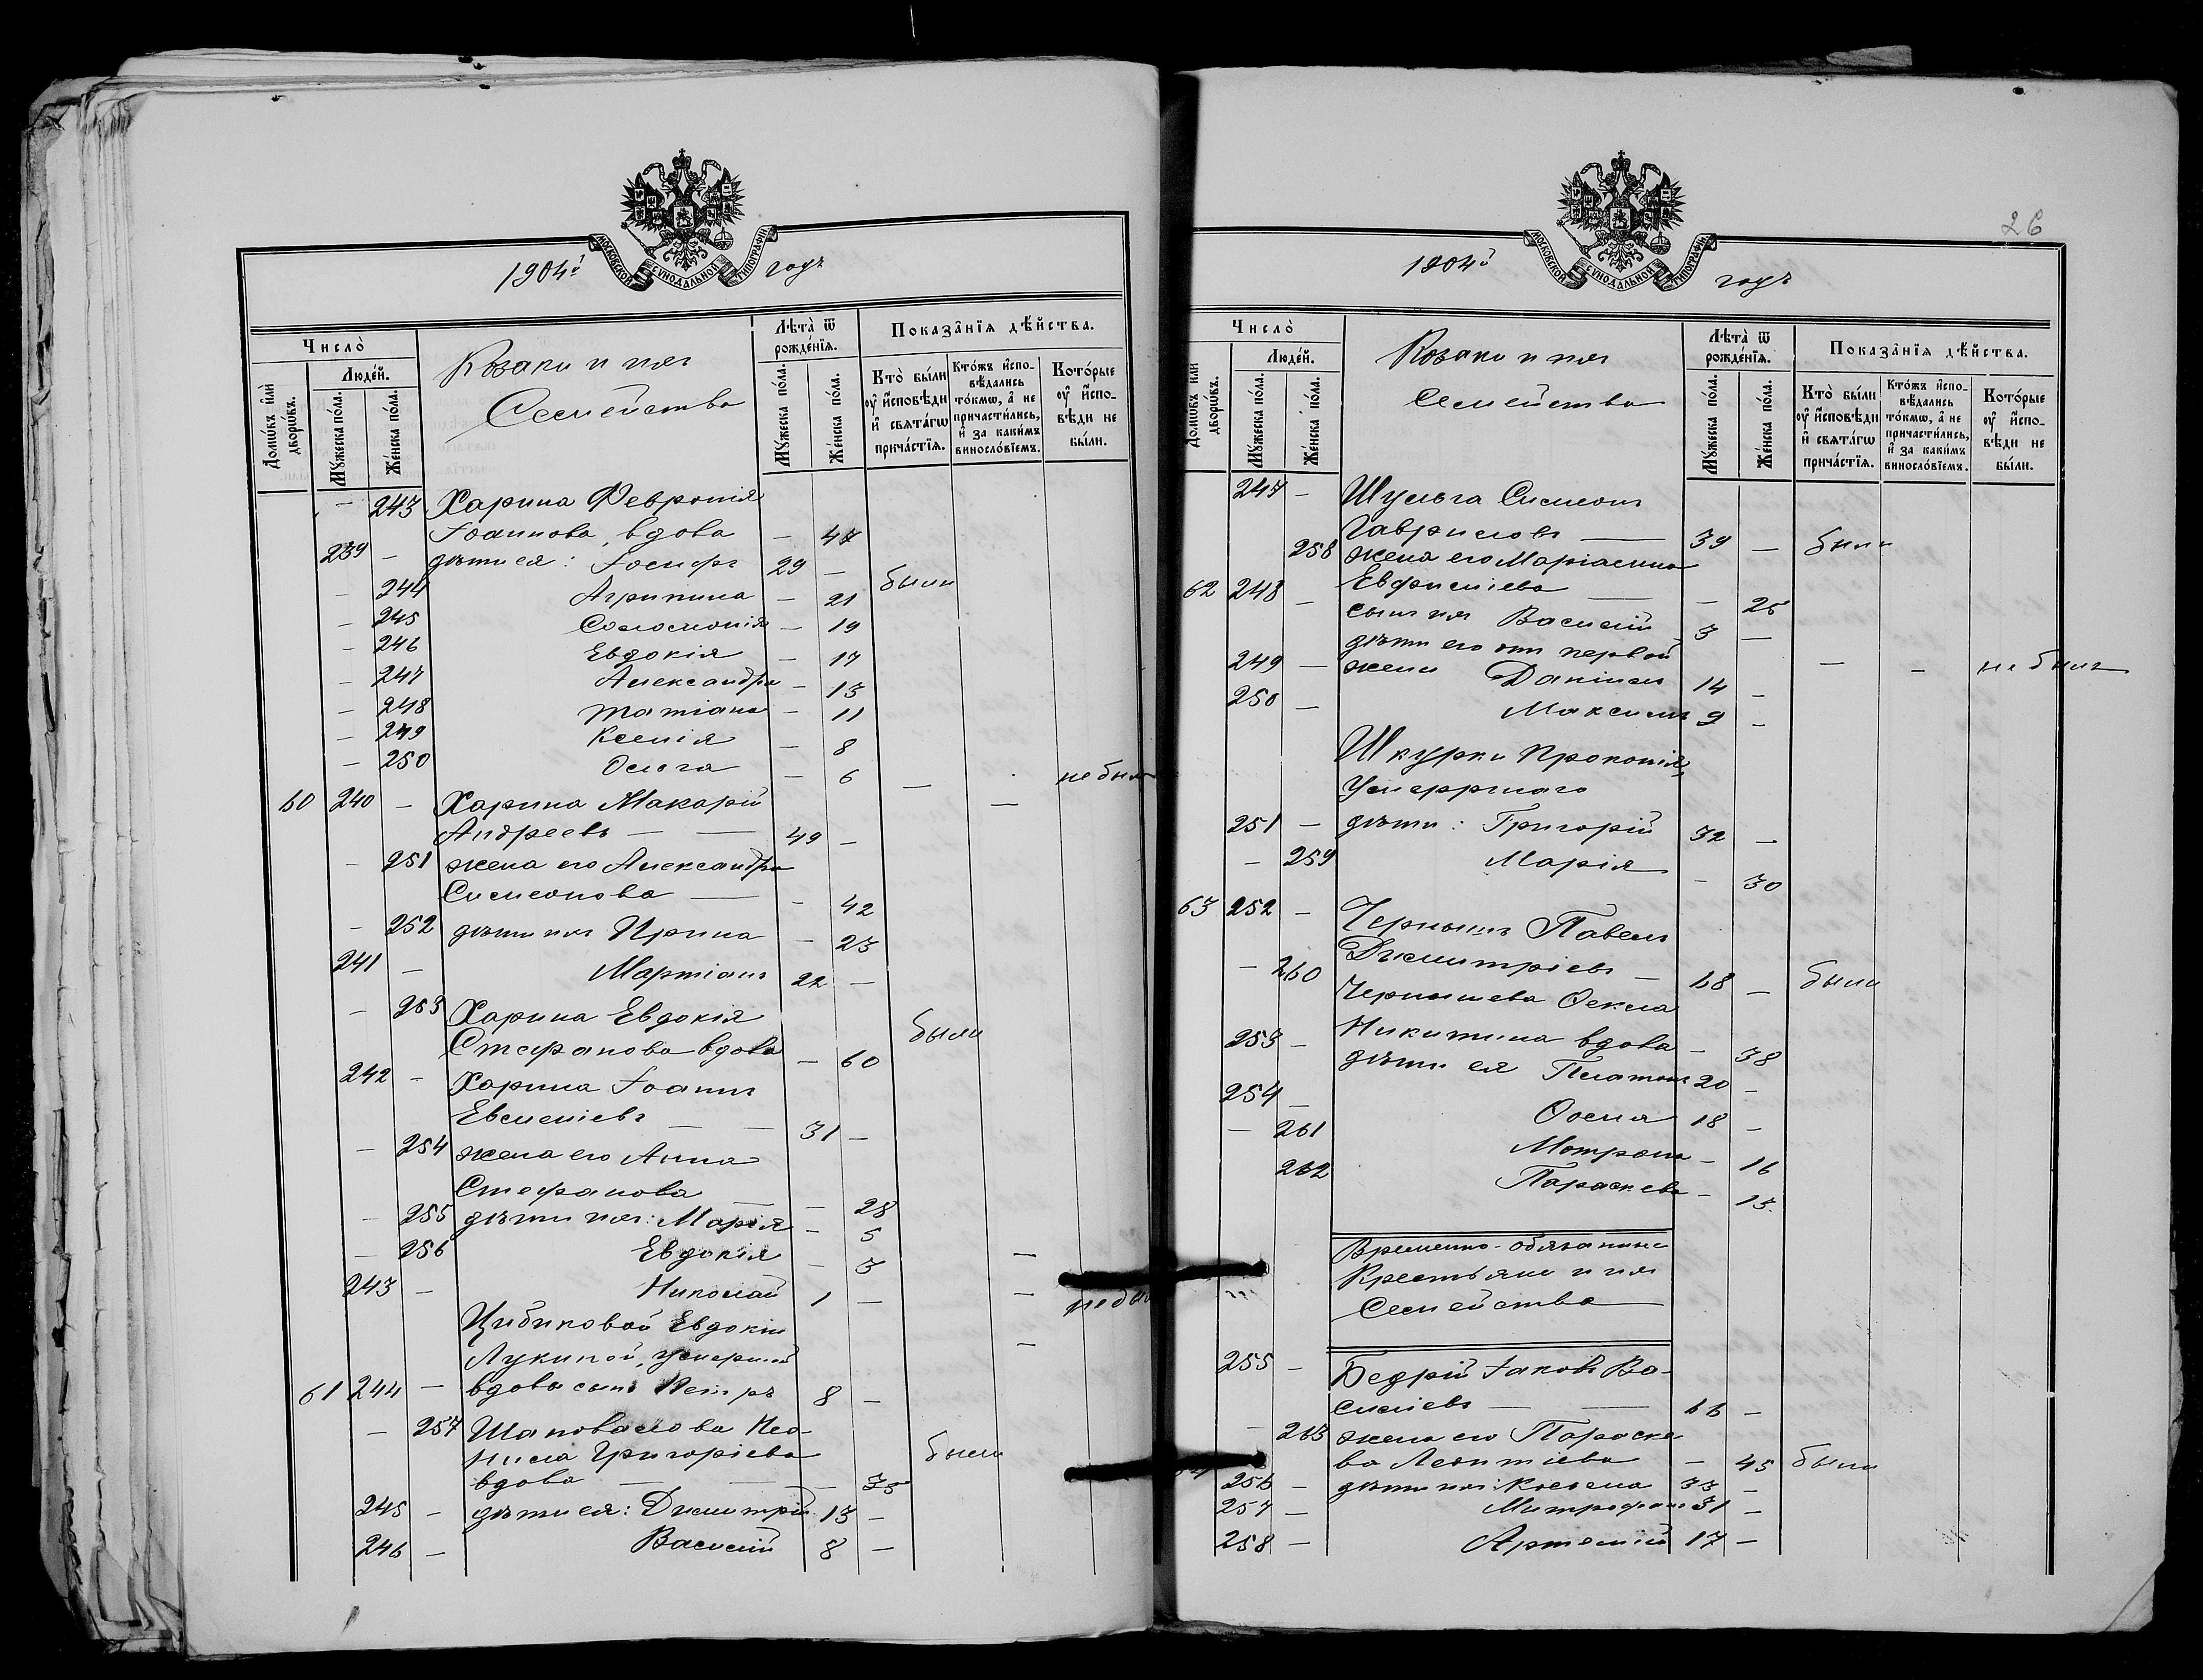 26
МОСКОВСКОЙ СУНОДАЛЬНОЙ ТИПОГРАФІИ
1904й годъ
Число̀
Домѡ́въ и҆лѝ дворѡ́въ.
Люде́й.
Мꙋ́жеска по́ла.
Же́нска по́ла.
Козаки и ихъ
Семейства
Лѣ́та ѿ рожде́нїѧ.
Мꙋ́жеска по́ла.
Же́нска по́ла.
Показа̑нїѧ дѣ́йства.
Кто̀ бы́ли ᲂу҆ и҆сповѣди и҆ свѧта́гѡ прича́стїѧ.
Кто́жъ и҆сповѣдались то́кмѡ, а҆ не причасти́лись, и҆ за каки́мъ винослόвїемъ.
Кото́рые ᲂу҆ и҆сповѣди не бы́ли.
- 243 Харина Февронія
Іоаннова, вдова - 47
239 - дѣти ея: Іосифъ 29 -
- 244 Агрипина - 21 были
- 245 Соломонія - 19
- 246 Евдокія - 17
- 247 Александра - 13
- 248 Татіана - 11
- 249 Ксенія - 8
- 250 Ольга - 6 - - не были
60 240 - Харина Макарій
Андреевъ - - 49 -
- 251 жена его Александра
Симеонова - - 42
- 252 дѣти ихъ Ирина - 23
241 - Мартіанъ 22 -
- 253 Харина Евдокія
Стефанова вдова - 60 были
242 - Харина Іоаннъ
Евсеміевъ - - 31 -
- 254 жена его Анна
Стефанова - - 28
- 255 дѣти ихъ: Марія - 5
- 256 Евдокія - 3 -
243 - Николай 1 - - не бы
Цибиковой Евдокіи
Лукиной, умершей -
61 244 - вдовы сынъ Петръ 8 -
- 257 Шаповалова Нео-
нила Григоріева были
вдова - - - 35
245 - дѣти ея: Димитрій 13 -
246 - Василій 8 -
МОСКОВСКОЙ СУНОДАЛЬНОЙ ТИПОГРАФІИ
1904й годъ
Число̀
Домѡ́въ и҆лѝ дворѡ́въ.
Люде́й.
Мꙋ́жеска по́ла.
Же́нска по́ла.
Козаки и ихъ
Семейства
Лѣ́та ѿ рожде́нїѧ.
Мꙋ́жеска по́ла.
Же́нска по́ла.
Показа̑нїѧ дѣ́йства.
Кто̀ бы́ли ᲂу҆ и҆сповѣди и҆ свѧта́гѡ прича́стїѧ.
Кто́жъ и҆сповѣдались то́кмѡ, а҆ не причасти́лись, и҆ за каки́мъ винослόвїемъ.
Кото́рые ᲂу҆ и҆сповѣди не бы́ли.
247 - Шульга Симеонъ
Гавриловъ - 39 - были
258 жена его Маріамна
62 248 - Евфиміева - - 25
сынъ ихъ Василій 3 -
дѣти его отъ первой
249 - жены Даніилъ 14 - - - не были
250 - Максимъ 9 -
Шкурки Прокопія
Умершаго
251 - дѣти: Григорій 32 -
- 259 Марія - 30
63 252 - Чернышъ Павелъ
Димитріевъ - 68 - были
- 260 Чернышева Ѳекла
Никитина вдова - 38
253 - дѣти ея Платонъ 20 -
254 - Ѳома 18 -
- 261 Мотрона - 16
262 Параскева - 13
Временно-обязанные
Крестьяне и ихъ
Семейства
255 - Бедрій Іаковъ Ва-
силіевъ - - 66 -
- 263 жена его Параске-
ва Леонтіева - 45 были
256 - дѣти ихъ: Косьма 33 -
257 - Митрофанъ 31 -
258 - Артемій 17 -